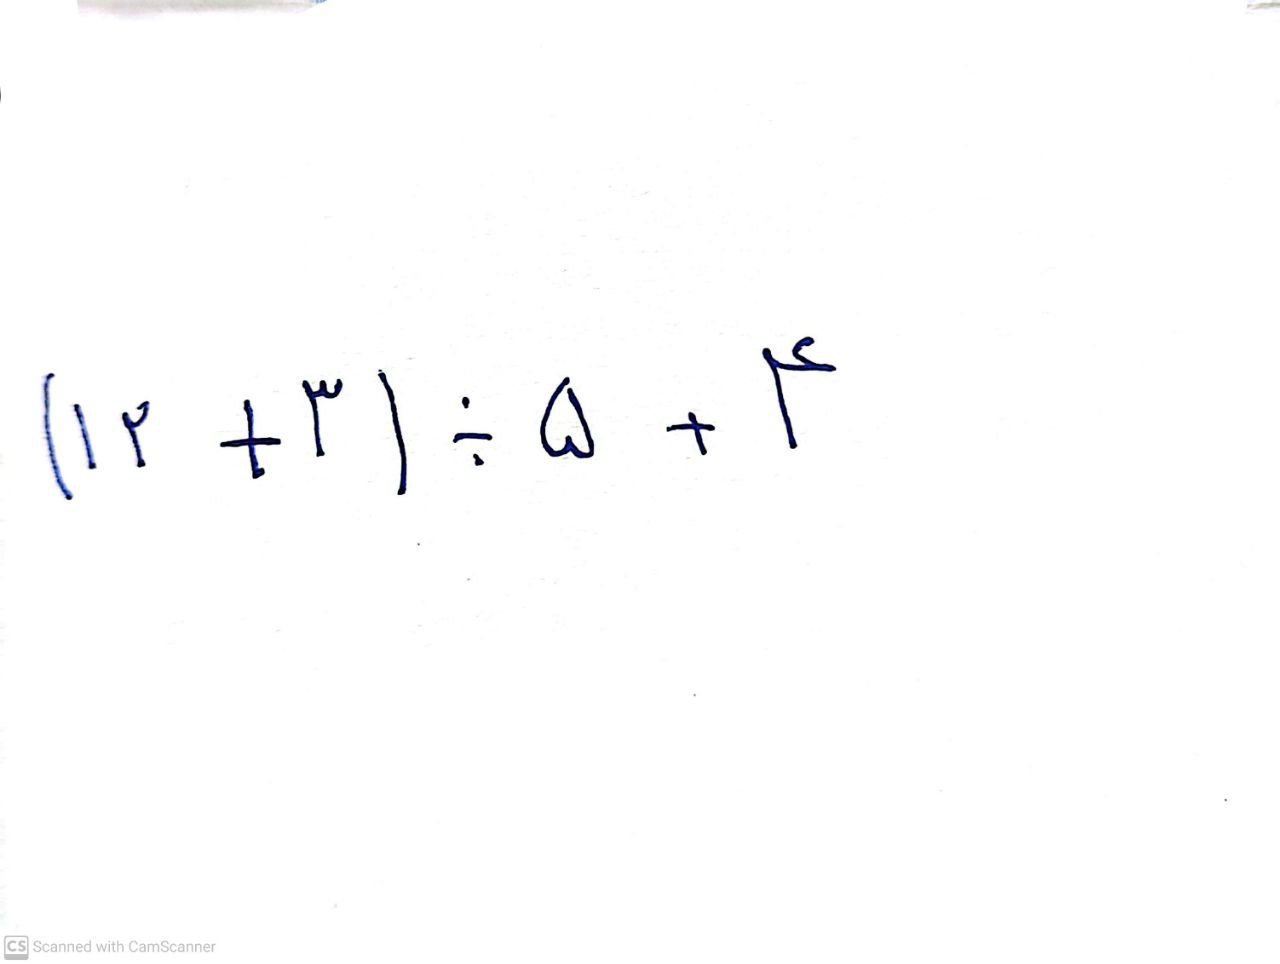 (۱۲ + ۳) ÷ ۵ + ۴
CS Scanned with CamScanner